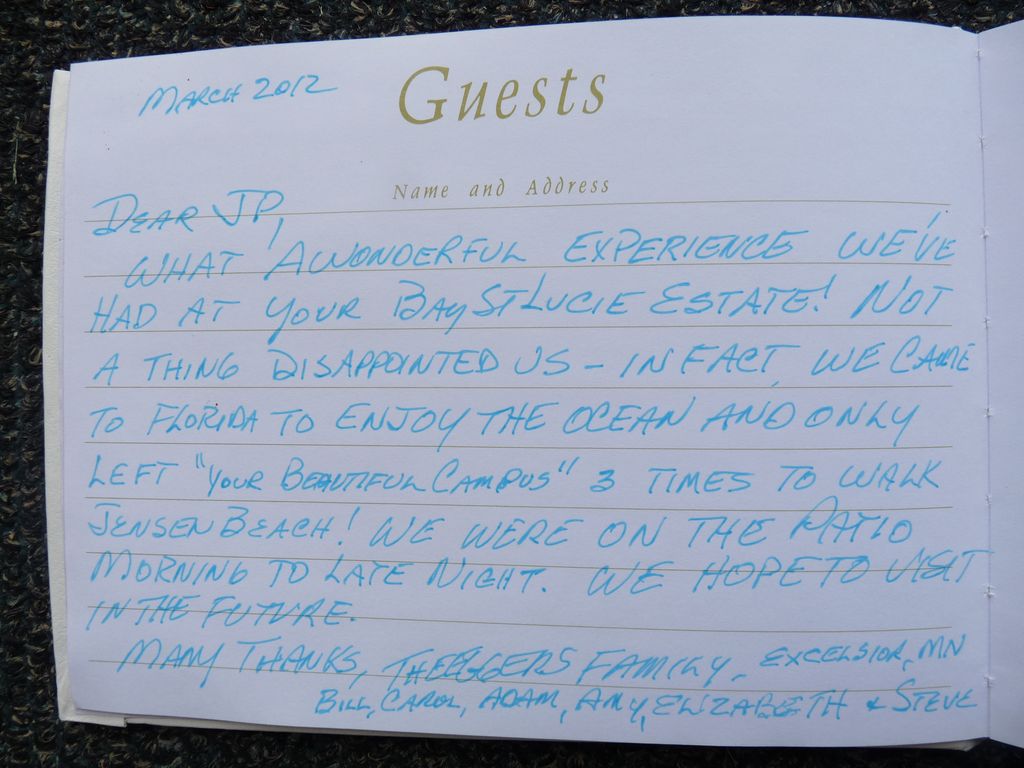 March 2012
Guests
Name and Address
Dear JP,
What a wonderful experience we've
had at your Bay St Lucie Estate! Not
a thing disappointed us - in fact, we came
to Florida to enjoy the ocean and only
left "your beautiful campus" 3 times to walk
Jensen Beach! We were on the patio
morning to late night. We hope to visit
in the future.
Many thanks, The Eggers Family. Excelsior, MN
Bill, Carol, Adam, Amy, Elizabeth & Steve